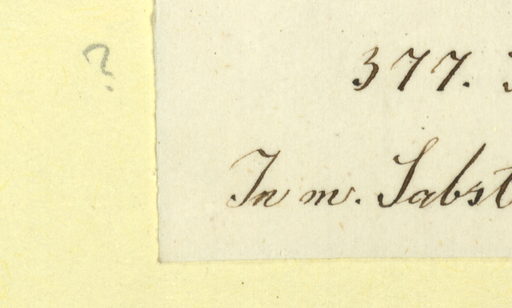 ?
377.
In m. Sabst